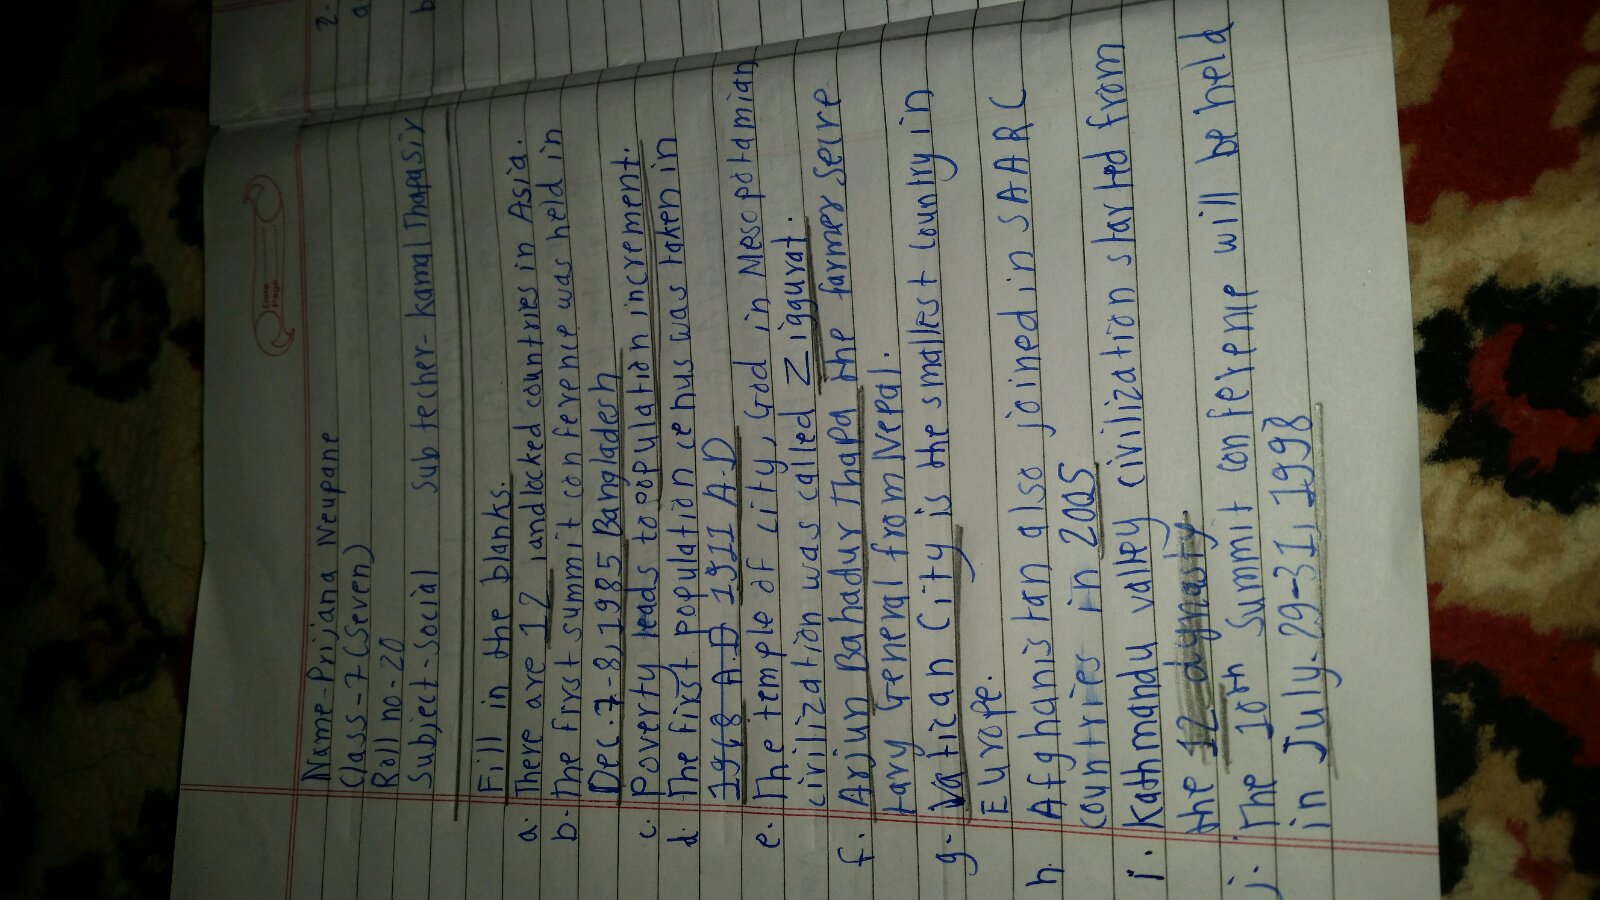 Date
Page
Name-Prijana Neupane
Class-7(Seven)
Roll no-20
Subject-Social Sub techer-kamal Thapa sir
Fill in the blanks.
a. There are 12 landlocked countries in Asia.
b. The first summit conference was held in
Dec.7-8,1985 Bangladesh
c. Poverty leads to population increment.
d. The first population cenus was taken in
1911 A.D
e. The temple of city, God in Mesopotamian
civilization was called Ziggurat.
f. Arjun Bahadur Thapa the farmer secre
tary General from Nepal.
g. Vatican City is the smallest country in
Europe.
h. Afghanistan also joined in SAARC
countries in 2005
i. Kathmandu valley civilization started from
the 12 dynasty
j. The 10th Summit conference will be held
in July-29-31,1998
2.
a
b